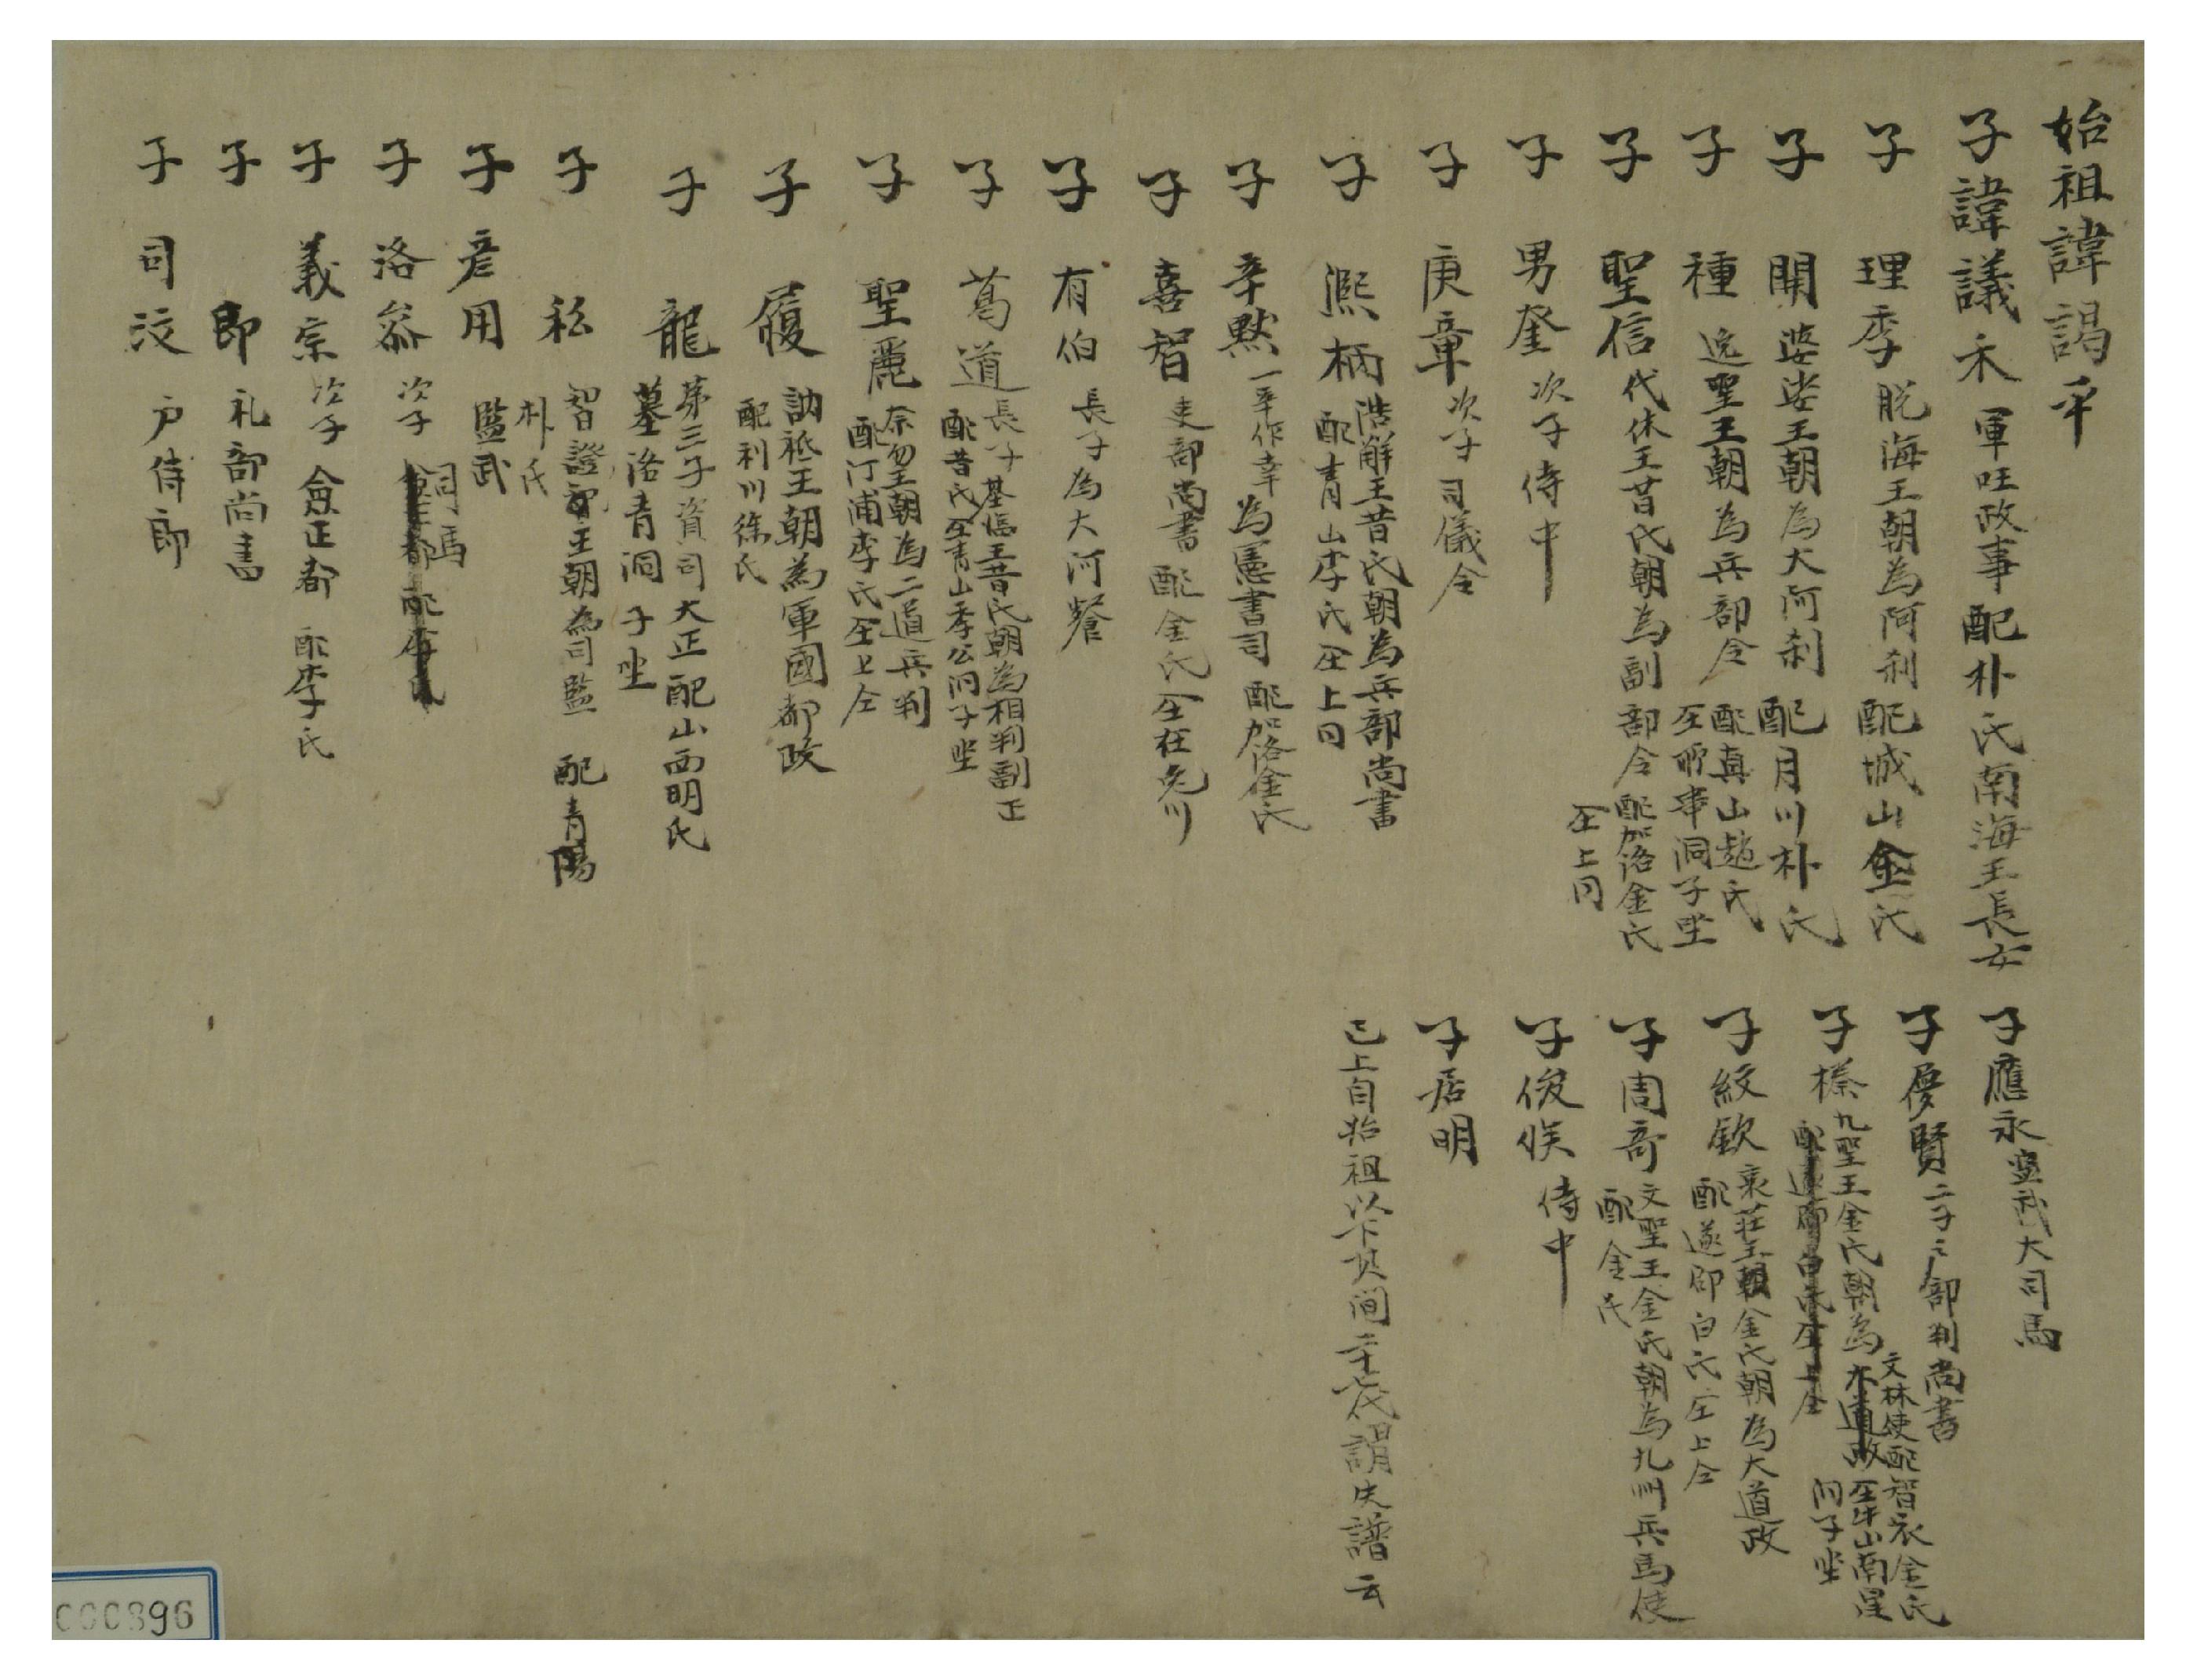 始祖諱謁平
子諱議禾 軍旺政事 配朴氏南海王長女
子 理季 脫海王朝為阿刹 配城山金氏
子 開 婆娑王朝為大阿刹 配月川朴氏
子 種 逸聖王朝為兵部令 配真山趙氏
洞子坐
子 聖信 代休王昔氏朝為副部令 配加洛金氏
上同
子 男奎 次子侍中
子 庚章 次子司儀令
子 熙柄 浩解王昔氏朝為兵部尚書
配青山李氏 上同
子 辛默 一辛作幸 為憲書司 配加洛金氏
子 喜智 吏部尚書 配金氏 在兔川
子 有伯 長子為大河餐
子 葛道 長子 基臨王昔氏朝為相判副正
配昔氏 青山季公洞子坐
子 聖麗 奈勿王朝為二道兵判
配汀浦李氏 上仝
子 履 訥祗王朝為軍國都政
配利川徐氏
子 龍 第三子資司大正 配山西明氏
墓洛青洞 子坐
子 私 智證王朝為司監 配青陽
朴氏
子 彦用 監武
子 洛 次子 司馬
子 義宗 次子 僉正都 配李氏
子 即 礼部尚書
子 司汶 户侍郎
子 應永 宣武大司馬
子 賢 二子之部判尚書
子 榛 九聖王金氏朝為
文林使配智衣金氏
山南星
洞子坐
子 紋欽 哀莊王朝金氏朝為大道政
配遂 白氏 上仝
子 周奇 文聖王金氏朝為九州兵馬使
配金氏
子 俊候 侍中
子 居明
已上自始祖以下其間二十七代謂失譜云
000896